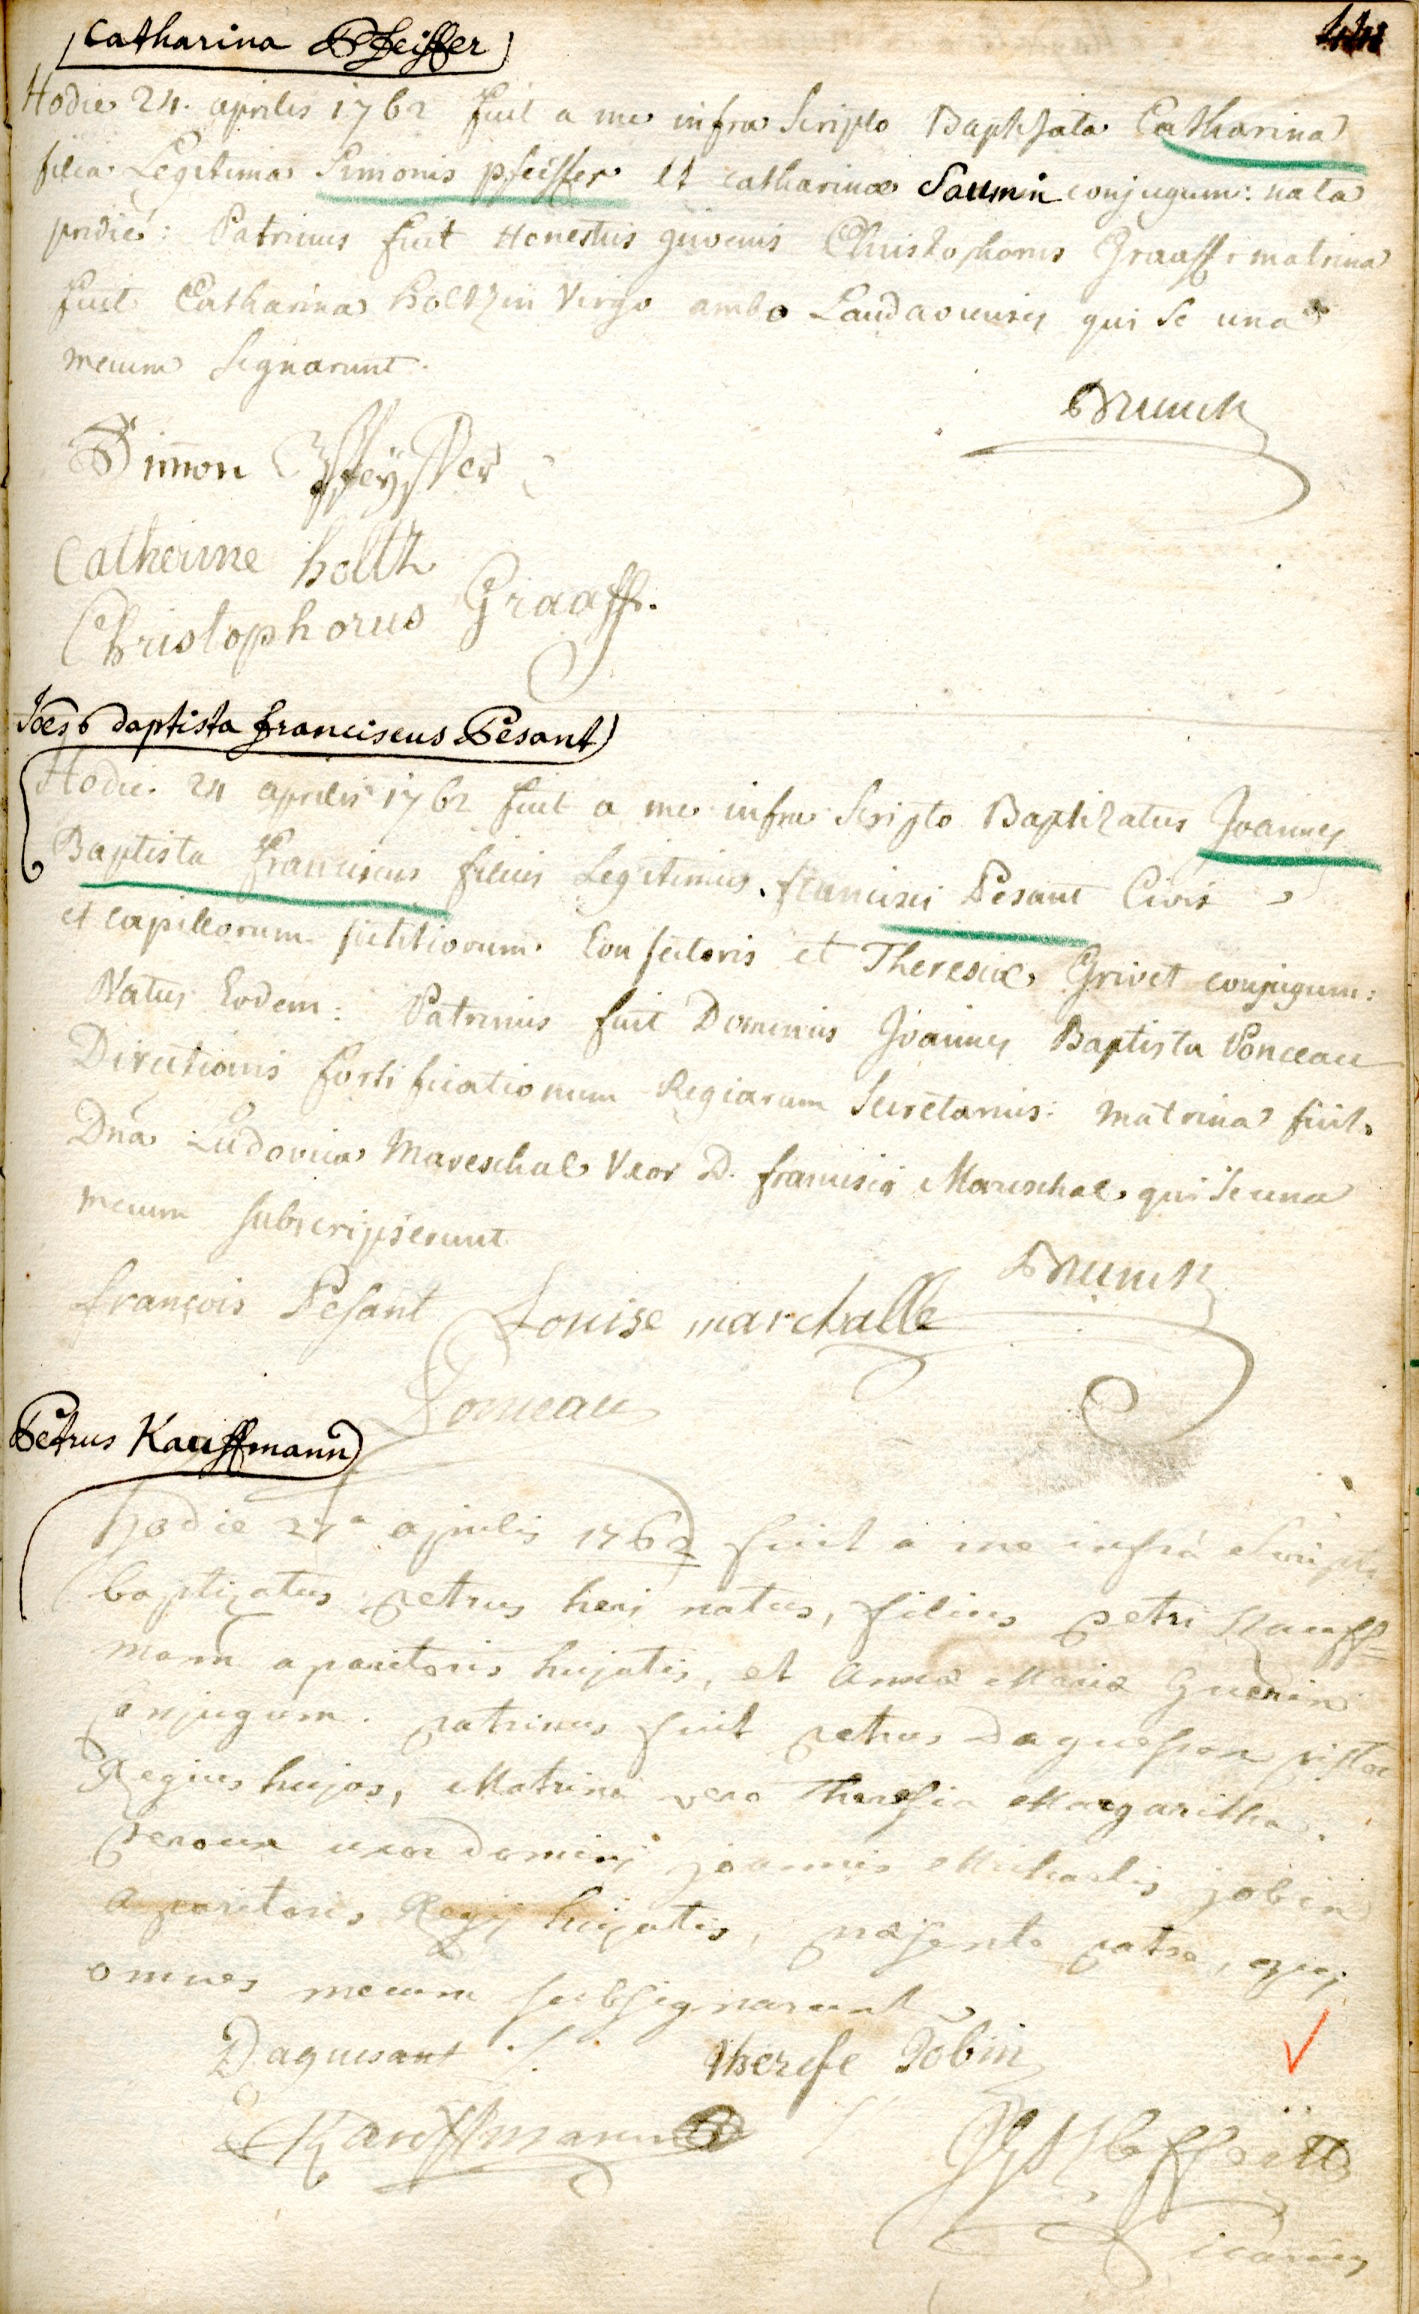 Catharina Pfeiffer
Hodie 24. aprilis 1762 fuit a me infra Scripto Baptizata Catharina
filia Legitima Simonis pfeiffer et catharinæ Saumin conjugum: nata
pridie: Patrinus fuit Honestus juvenis Christophorus Graaff: matrina
fuit Catharina Holtzin Virgo ambo Landavienses qui se una
mecum signarunt.
Brunck
Simon Pfeyffer
Catherine holtz
Christophorus Graaff.
Joes baptista franciscus Pesant
Hodie 24 aprilis 1762 fuit a me infra Scripto Baptizatus Joannes
Baptista Franciscus filius Legitimus francisci Pesant Civis
et capillorum fictitiorum Confectoris et Theresiæ Grivet conjugum:
Natus Eodem: Patrinus fuit Dominus Joannes Baptista Ponceau
Directionis fortificationum Regiarum Secretarius: matrina fuit
Dna Ludovica Mareschal Uxor D. francisci Mareschal qui se una
mecum subscripserunt
Brunck
françois Pesant Louise marchalle
Ponceau
Petrus Kauffmann
hodie 27a aprilis 1762 fuit a me infrà Scripto
baptizatus petrus heri natus, filius petri Kauff=
mann aparitoris hujatis, et Annæ Mariæ Guerin
Conjugum. patrinus fuit petrus Daguessan pistor
Regius hujas, Matrina vero Theresia Margaritha
uxor domini joannis Michaelis jobin
Aparitoris Regij hujatis, præsente patre, qui
omnes mecum subsignarunt
Daguesant therese Jobin
Kauffmann